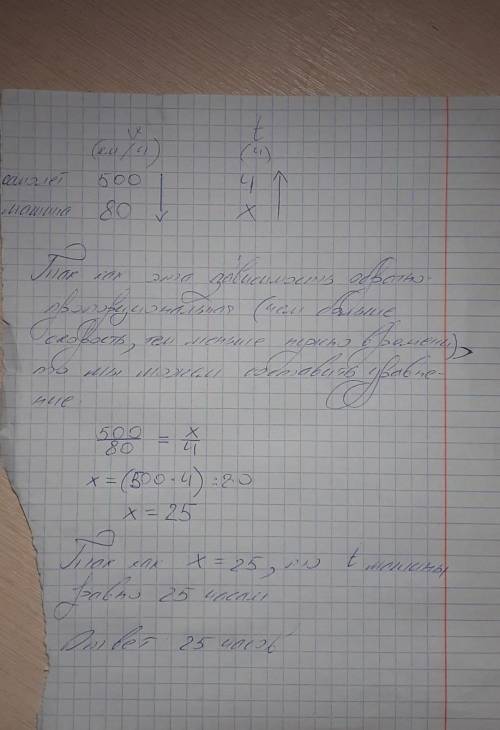 v t
(км/ч) (ч)
самолет 500 4
машина 80 x
Так как эта зависимость обратно-
пропорциональная (чем больше
скорость, тем меньше нужно времени),
то мы можем составить уравне-
ние:
500/80 = x/4
x = (500 · 4) : 80
x = 25
Так как x = 25, то t машины
равно 25 часам
Ответ 25 часов